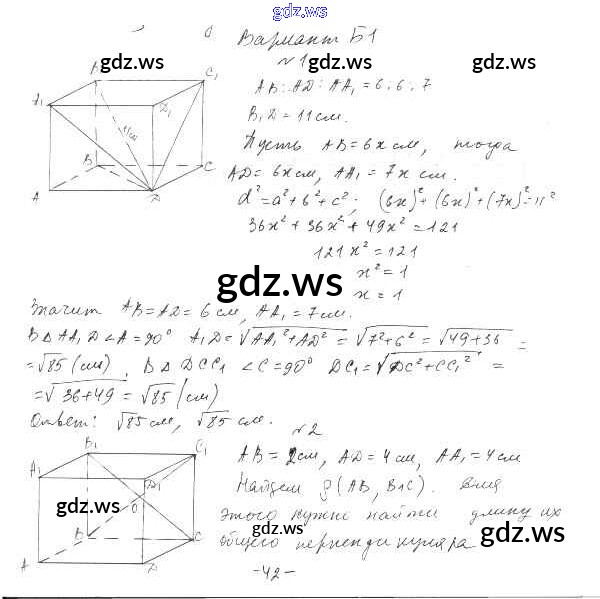 gdz.ws
Вариант Б1
gdz.ws
gdz.ws
№1
AB:AD:AA₁=6:6:7
B₁D=11см.
Пусть AB=6x см, тогда
AD=6x см, AA₁=7x см.
d²=a²+b²+c²; (6x)²+(6x)²+(7x)²=11²
36x²+36x²+49x²=121
121x²=121
x²=1
x=1
A₁ C₁ D₁ 11см B C A D
gdz.ws
Значит AB=AD=6см, AA₁=7см.
В △AA₁D ∠A=90° A₁D=√AA₁²+AD²=√7²+6²=√49+36=
=√85(см). В △DCC₁ ∠C=90° DC₁=√DC²+CC₁²=
=√36+49=√85(см)
Ответ: √85см, √85см.
№2
AB=2см, AD=4см, AA₁=4см
Найдем ρ(AB, B₁C). Для
этого нужно найти длину их
общего перпендикуляра
A₁ B₁ C₁ D₁ O B C A D
gdz.ws
gdz.ws
gdz.ws
-42-
gdz.ws
gdz.ws